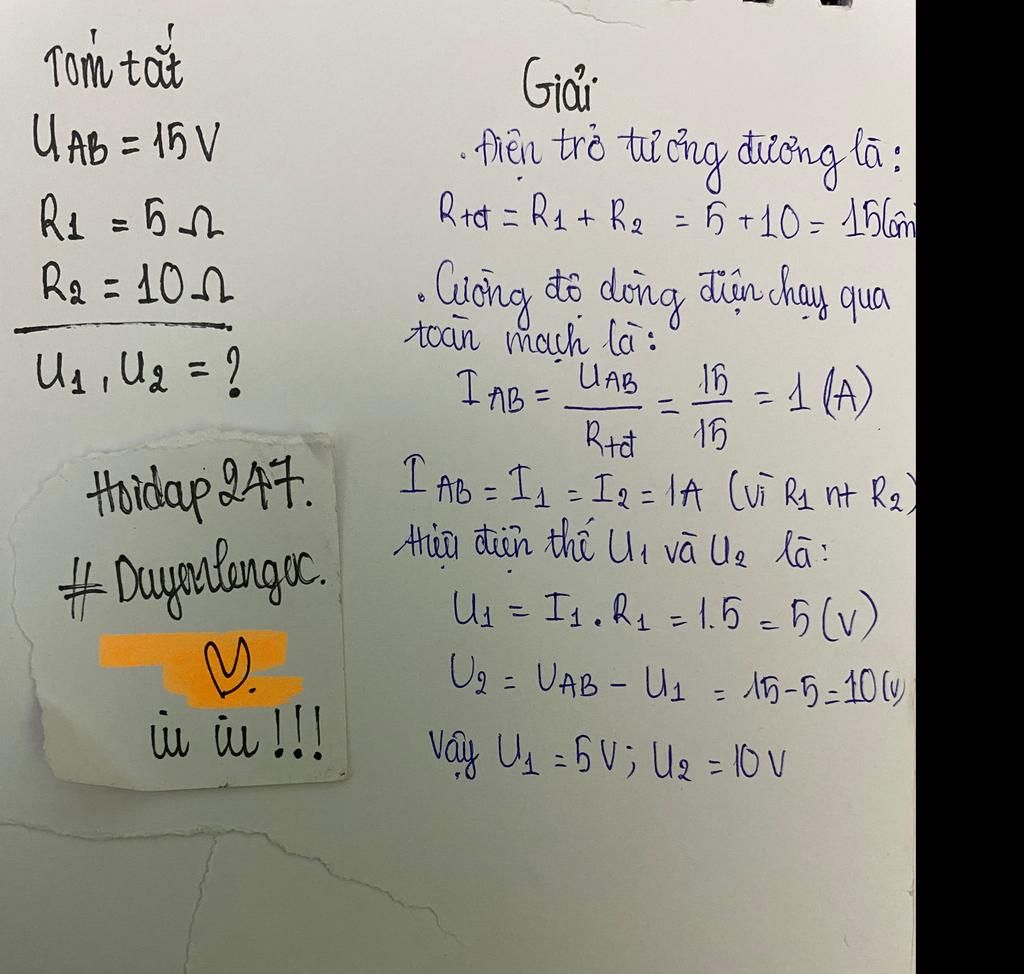 Tóm tắt
UAB = 15V
R1 = 5Ω
R2 = 10Ω
U1, U2 = ?
Hoidap247.
# Duyenlengoc.
iu iu !!!
Giải
. Điện trở tương đương là:
Rtđ = R1 + R2 = 5 + 10 = 15(ôm
. Cường độ dòng điện chạy qua
toàn mạch là:
IAB = UAB/Rtđ = 15/15 = 1 (A)
IAB = I1 = I2 = 1A (vì R1 nt R2)
Hiệu điện thế U1 và U2 là:
U1 = I1 . R1 = 1.5 = 5 (V)
U2 = UAB - U1 = 15-5=10(V)
Vậy U1 = 5V; U2 = 10V